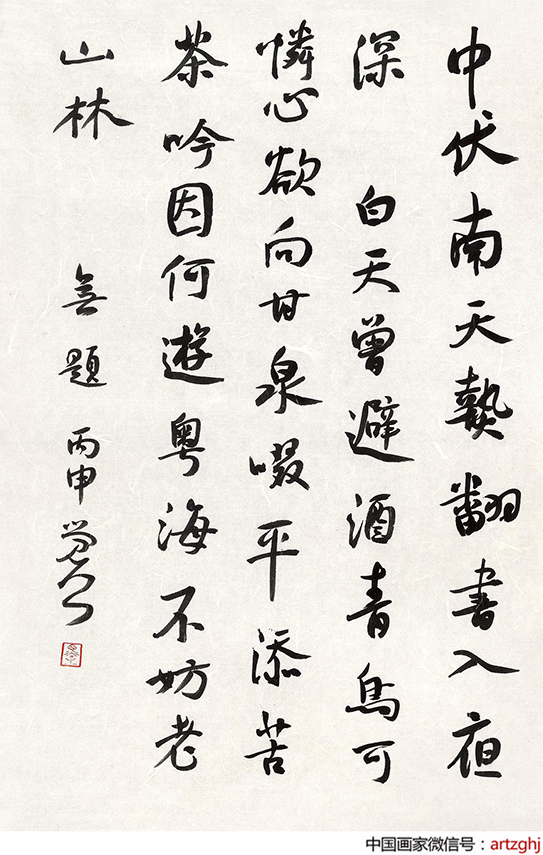 中伏南天熱翻書入夜
深 白天曾避酒青鳥可
憐心欲向甘泉啜平添苦
茶吟因何遊粤海不妨老
山林
無題 丙申
中国画家微信号：artzghj